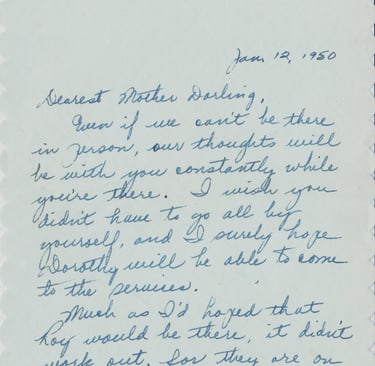 Jan. 12, 1950
Dearest Mother Darling,
Even if we can't be there
in person, our thoughts will
be with you constantly while
you're there. I wish you
didn't have to go all by
yourself, and I surely hope
Dorothy will be able to come
to the services.
Much as I'd hoped that
Roy would be there, it didn't
work out, for they are on